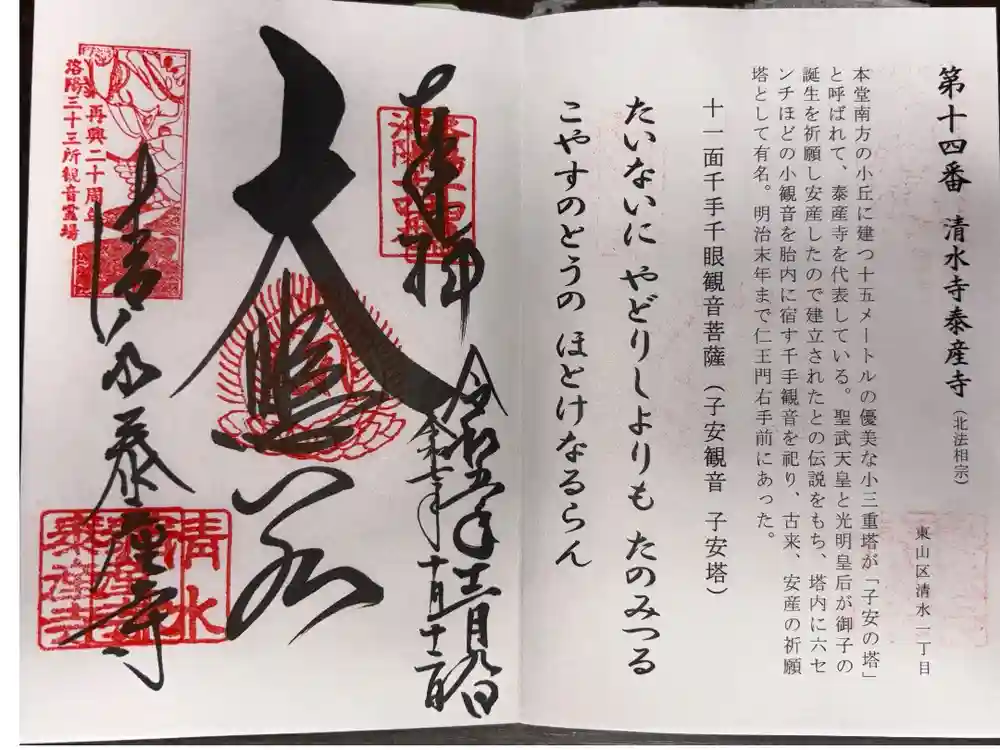 第十四番 清水寺泰産寺（北法相宗）
東山区清水一丁目
本堂南方の小丘に建つ十五メートルの優美な小三重塔が「子安の塔」
と呼ばれて、泰産寺を代表している。聖武天皇と光明皇后が御子の
誕生を祈願し安産したので建立されたとの伝説をもち、塔内に六セ
ンチほどの小観音を胎内に宿す千手観音を祀り、古来、安産の祈願
塔として有名。明治末年まで仁王門右手前にあった。
十一面千手千眼観音菩薩（子安観音 子安塔）
たいないに やどりしよりも たのみつる
こやすのとうの ほとけなるらん
奉拝
令和五年十一月九日
令和七年十月十二日
大悲閣
清水泰産寺
再興二十周年
洛陽三十三所観音霊場
清水
泰産寺